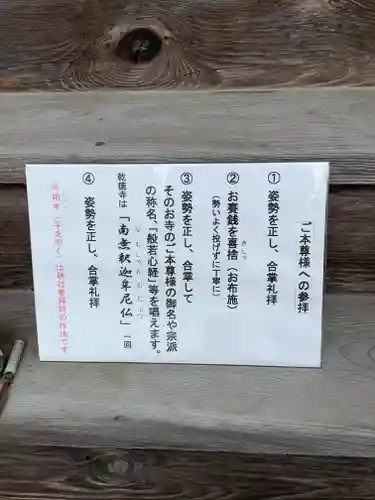 ご本尊様への参拝
①姿勢を正し、合掌礼拝
②お賽銭を喜捨（お布施）
きしゃ
（勢いよく投げずに丁寧に）
③姿勢を正し、合掌して
そのお寺のご本尊様の御名や宗派
の称名、「般若心経」等を唱えます。
乾徳寺は「南無釈迦牟尼仏」一回
なむしゃかむにぶつ
④姿勢を正し、合掌礼拝
※拍手（手を叩く）は神社参拝時の作法です